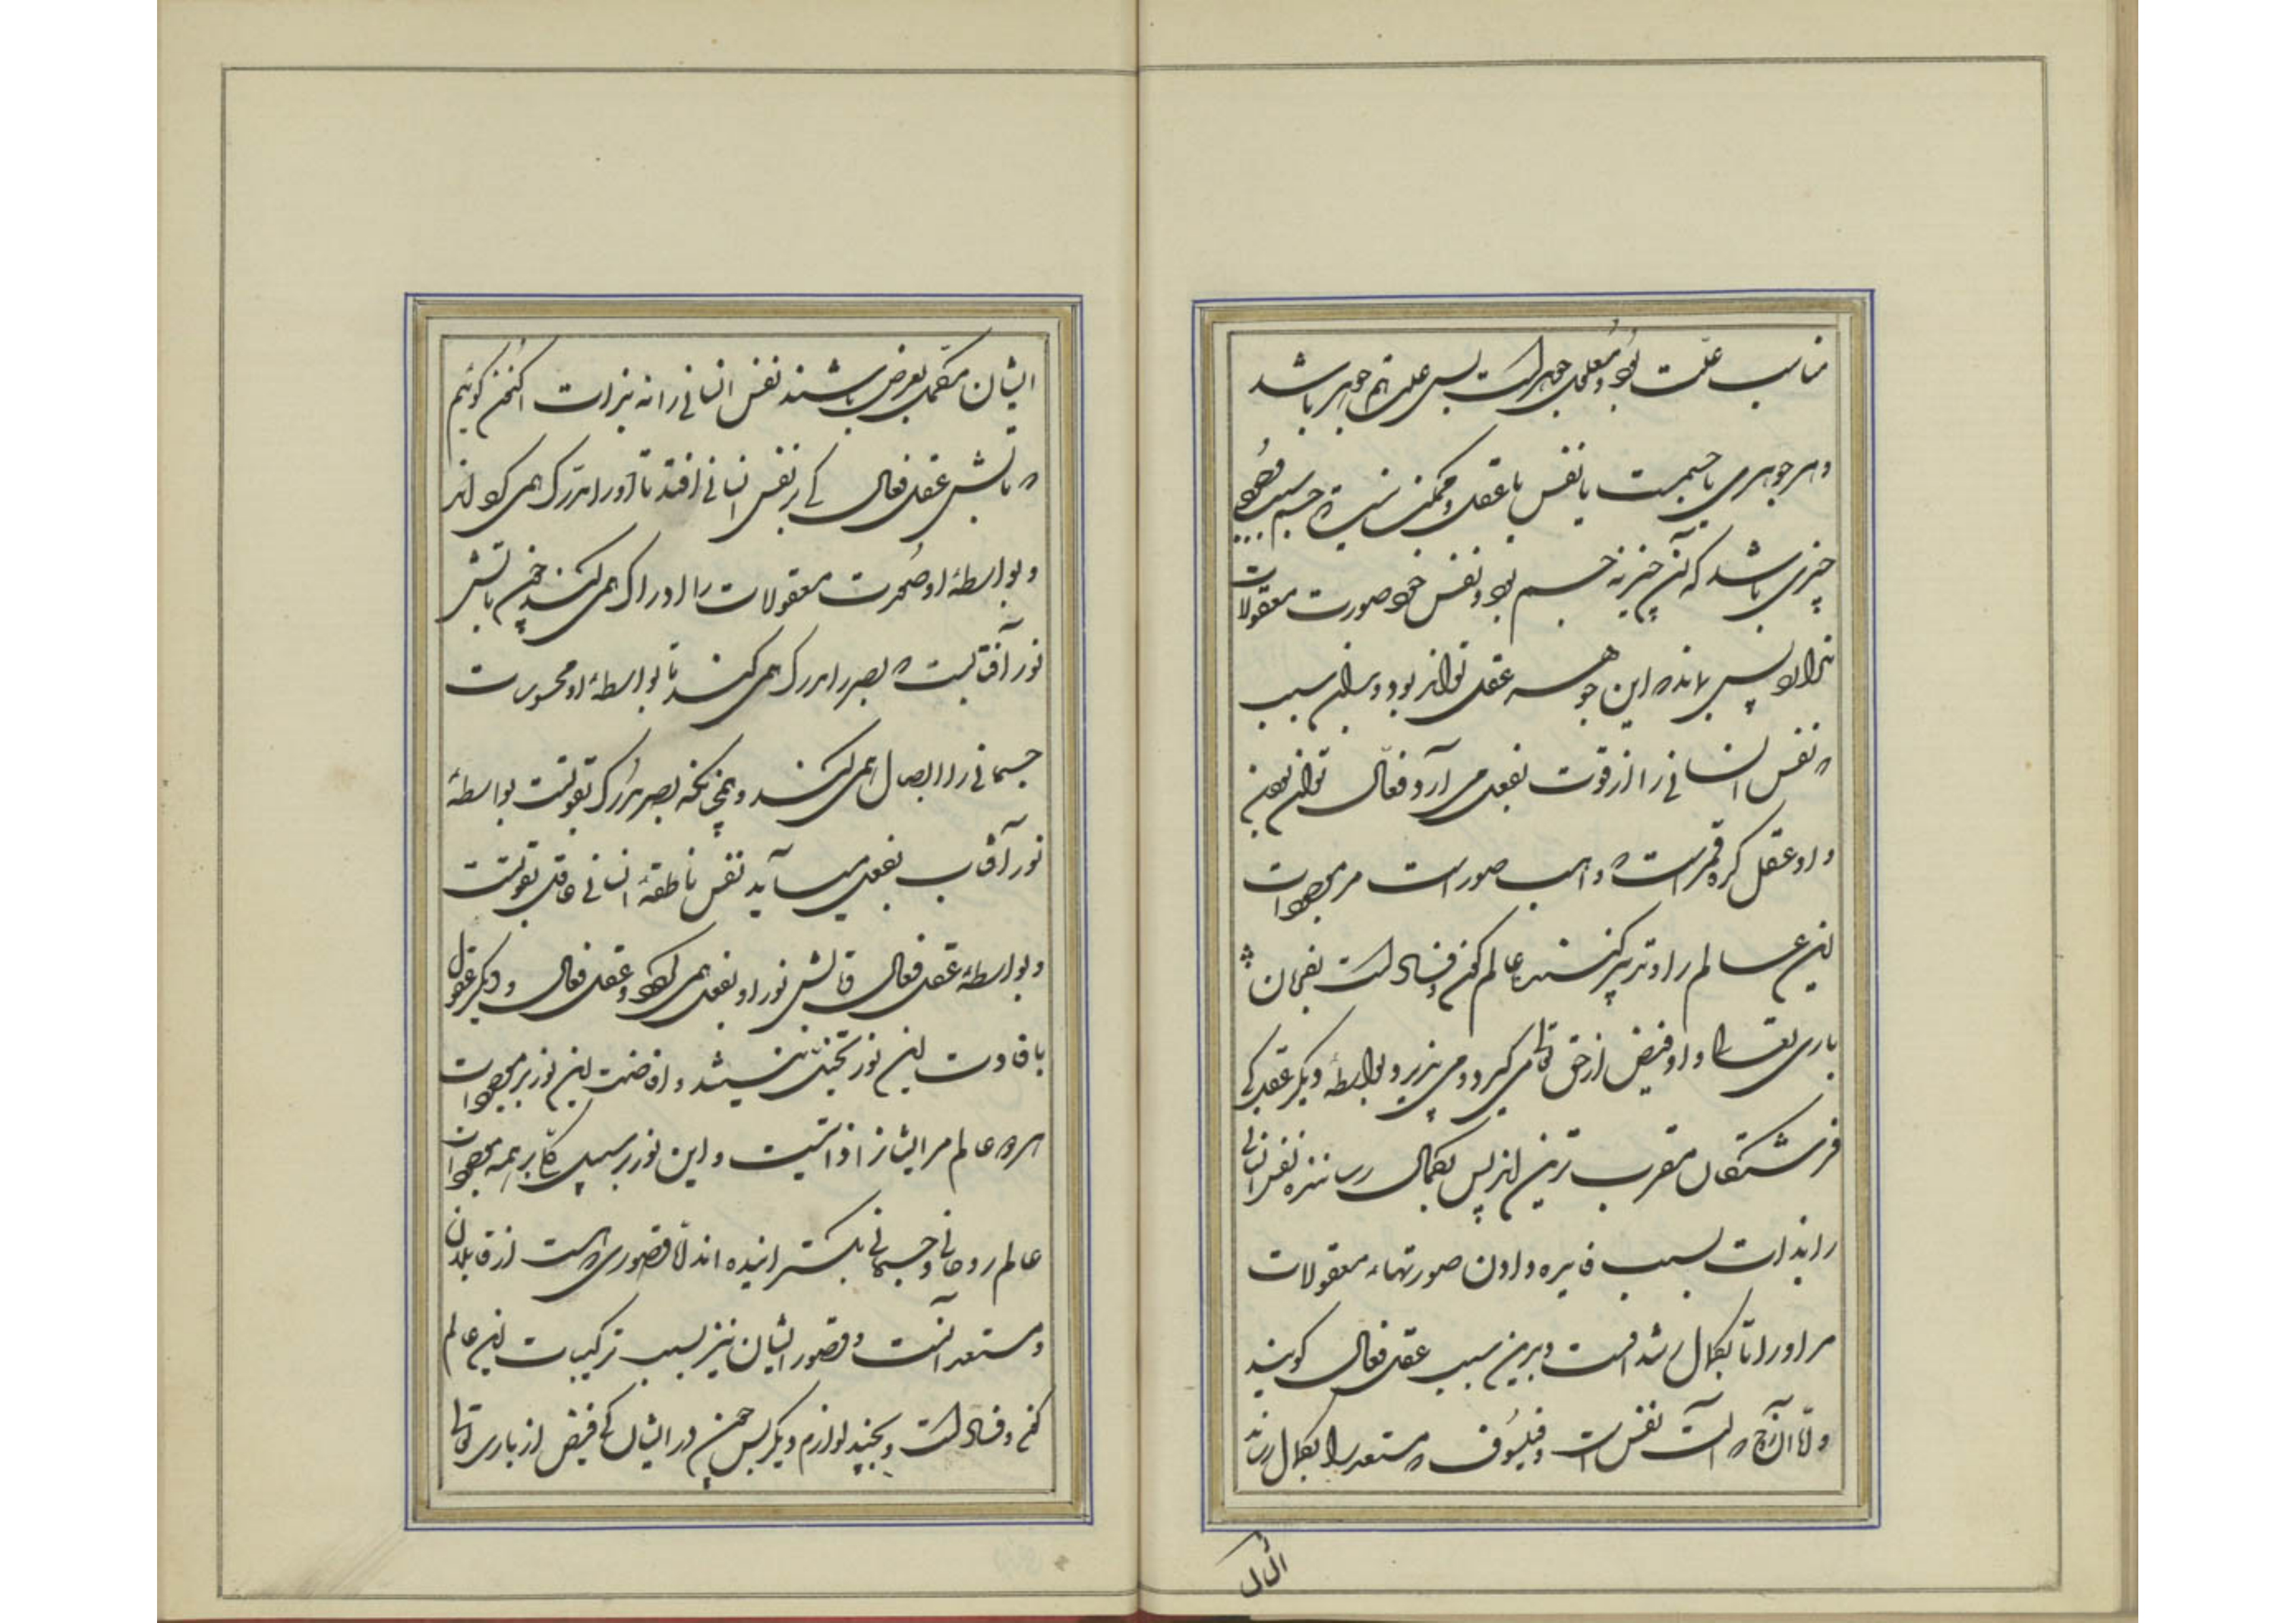 مناسب علّت بود و معلول جوهر است پس علت هم جوهر باشد
و هر جوهری یا جسمست یا نفس یا عقل و ممکن نیست که جسم سبب وجود
چیزی باشد که آن چیز نه جسم بود و نفس خود صورت معقولات
ندارد پس بماند که این جوهر عقل تواند بود و بدان سبب
که نفس انسانی را از قوت بفعل می آرد فعّال توان
و او عقل کره قمر است که واهب صور است مر موجودات
این عالم را و تدبیر کننده عالم کون و فساد است بفرمان
باری تعالی و او فیض از حق تعالی می گیرد و می پذیرد بواسطهٔ دیگر عقل کی
فرشتگان مقرب ترین اند پس بکمال رساننده نفس انسانی
را بذات بسبب فایده دادن صورتهاء معقولات
مر او را تا بکمال رسد اوست و برین سبب عقل فعال گویند
و امّا آنچه آلت نفس است و فیلسوف که مستعد را بکمال رساند
ایشان
ایشان مکمل بعرض باشند نفس انسانی را نه بذات اکنون گوئیم
که تابش عقل فعال کی بر نفس انسانی افتد تا او را مدرک همی کرداند
و بواسطهٔ او صورت معقولات را ادراک همی کند چون تابش
نور آفتابست که بصر را مدرک همی کند تا بواسطهٔ او محسوسات
جسمانی را ابصار همی کند و همچنانکه بصر مدرک بقوتست بواسطهٔ
نور آفتاب بفعل می آید نفس ناطقهٔ انسانی عاقل بقوتست
و بواسطهٔ عقل فعال و تابش نور او بفعل همی گردد و عقل فعال و دیگر عقول
بافادت این نور بخیل نیستند و افاضت این نور بر موجودات
هر دو عالم مر ایشانرا ذاتیست و این نور بر سبیل کلّ بر همه موجودات
عالم روحانی و جسمانی بگسترانیده اند امّا قصوری که هست از قابلان
و مستعد آنست و قصور ایشان نیز بسبب ترکیبات این عالم
کون و فساد است و بچند لوازم دیگر پس چون در ایشان کی فیض از باری تعالی